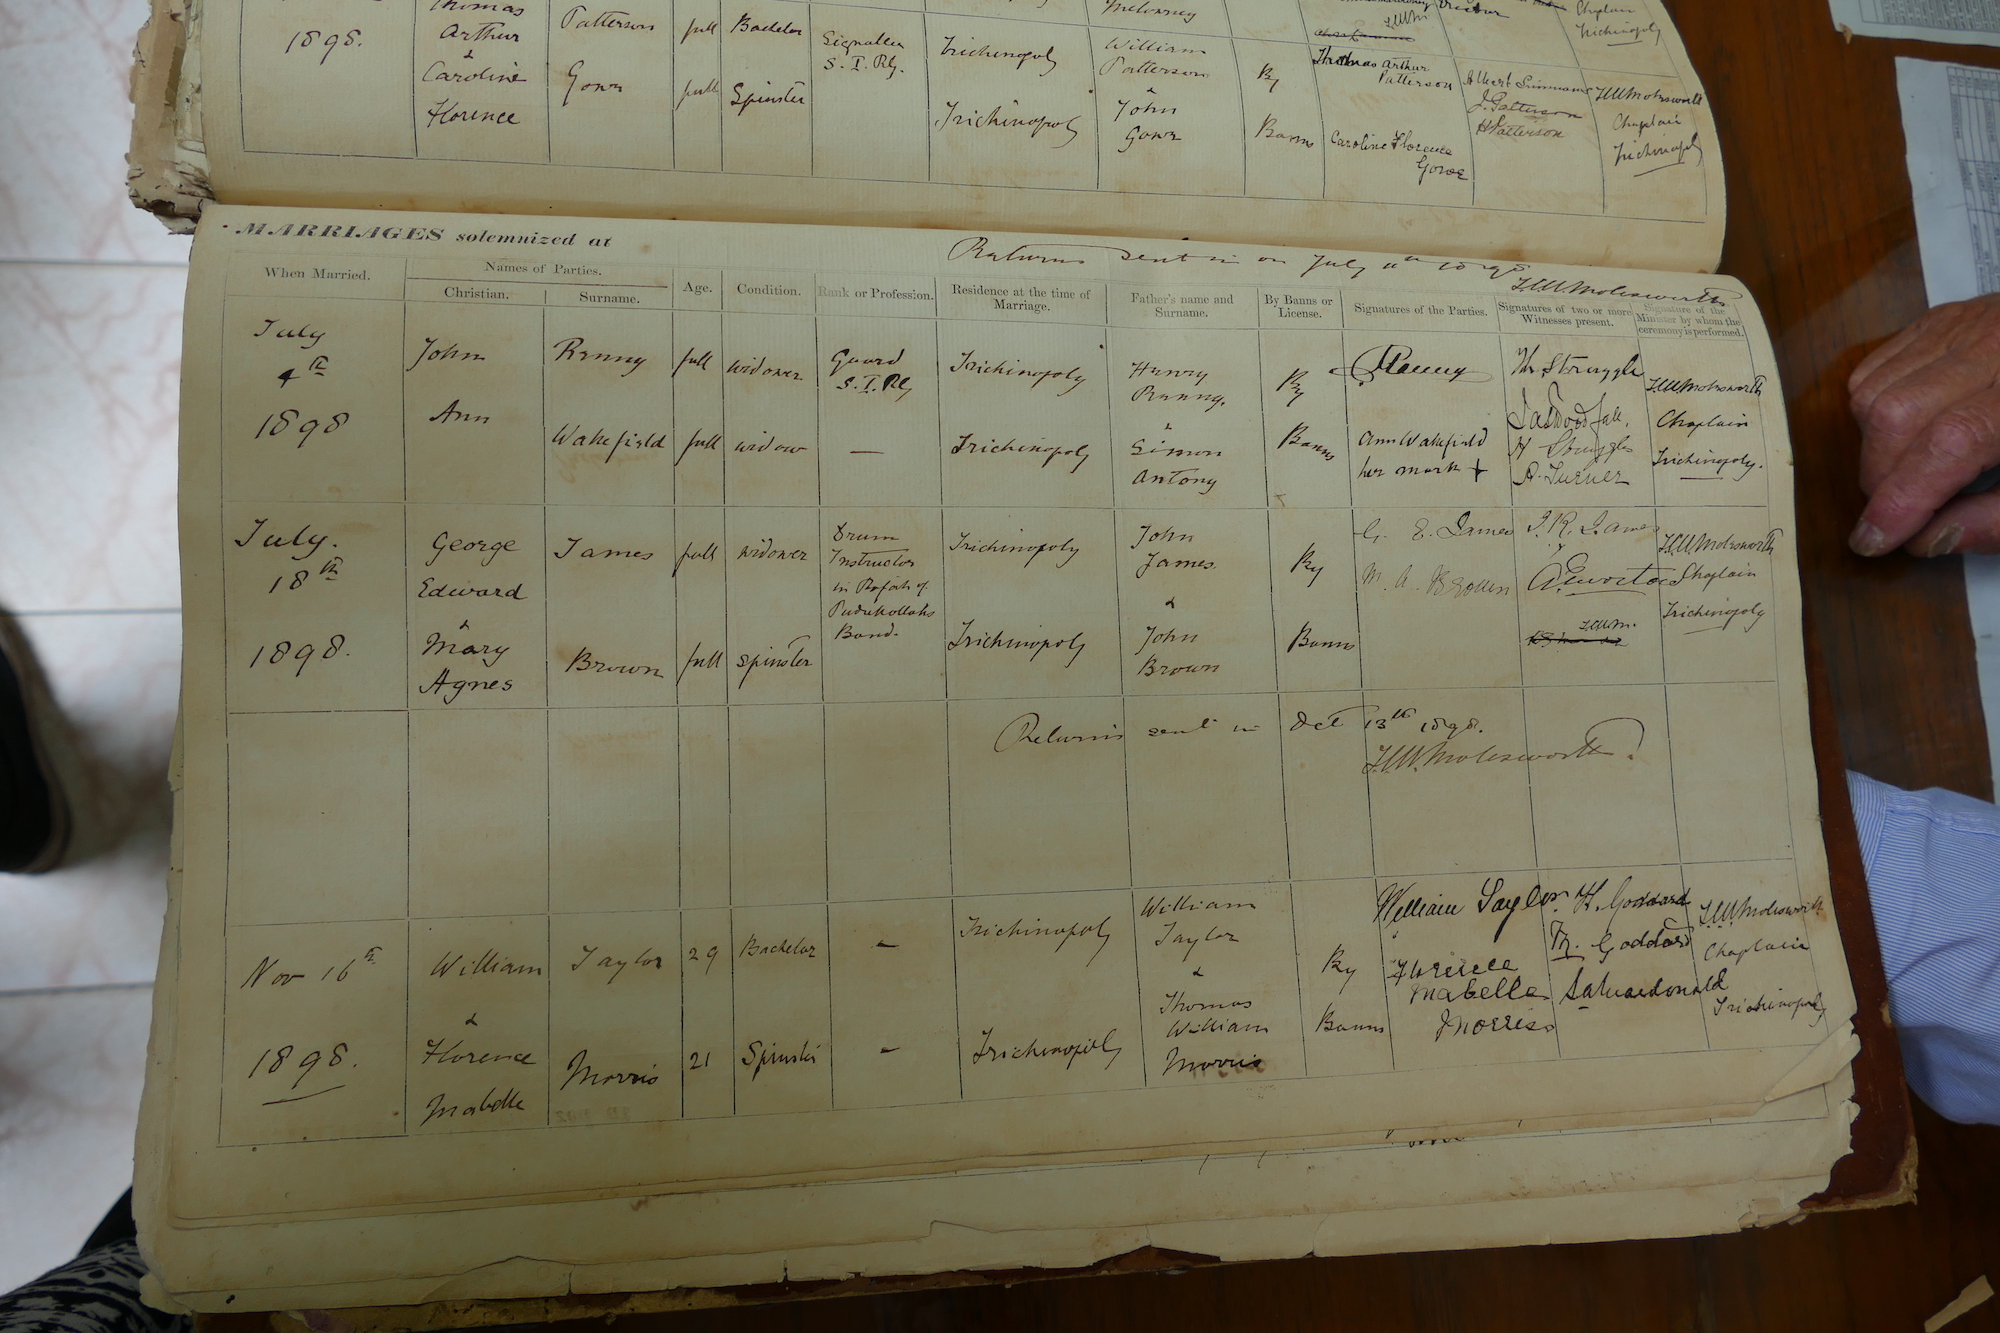 Thomas
Arthur
&
Caroline
Florence
1898.
Patterson
Gowr
full
full
Bachelor
Spinster
Signaller
S. I. Rly.
Trichinopoly
Trichinopoly
William
Patterson
&
John
Gowr
By
Banns
Thomas Arthur
Patterson
Caroline Florence
Gowr
Albert Simmons
J. Patterson
H Patterson
Chaplain
Trichinopoly
H.W. Molesworth
Chaplain
Trichinopoly
MARRIAGES solemnized at
Returns sent in on July 11th 1898
Molesworth
When Married.
Names of Parties.
Christian.
Surname.
Age.
Condition.
Rank or Profession.
Residence at the time of
Marriage.
Father's name and
Surname.
By Banns or
License.
Signatures of the Parties.
Signatures of two or more
Witnesses present.
Signature of the
Minister by whom the
ceremony is performed.
July
4th
1898
John
Ann
Ranny
Wakefield
full
full
widower
widow
Guard
S. I. Rly
—
Trichinopoly
Trichinopoly
Henry
Ranny.
&
Simon
Antony
By
Banns
Ann Wakefield
her mark +
Struggle
A. Turner
Molesworth
Chaplain
Trichinopoly.
July.
18th
1898.
George
Edward
&
Mary
Agnes
James
Brown
full
full
widower
spinster
Drum
Instructor
in
Pudukottahs
Band.
Trichinopoly
Trichinopoly
John
James.
&
John
Brown
By
Banns
G. E. James
M. A. Brown
J. R. James
Molesworth
Chaplain
Trichinopoly
Returns sent in Oct 13th 1898.
Molesworth
Nov 16th
1898.
William
&
Florence
Mabelle
Taylor
Morris
29
21
Bachelor
Spinster
-
-
Trichinopoly
Trichinopoly
William
Taylor
&
Thomas
William
Morris
By
Banns
William Taylor
Florence
Mabelle
Morris
H. Goddard
M. Goddard
Molesworth
Chaplain
Trichinopoly